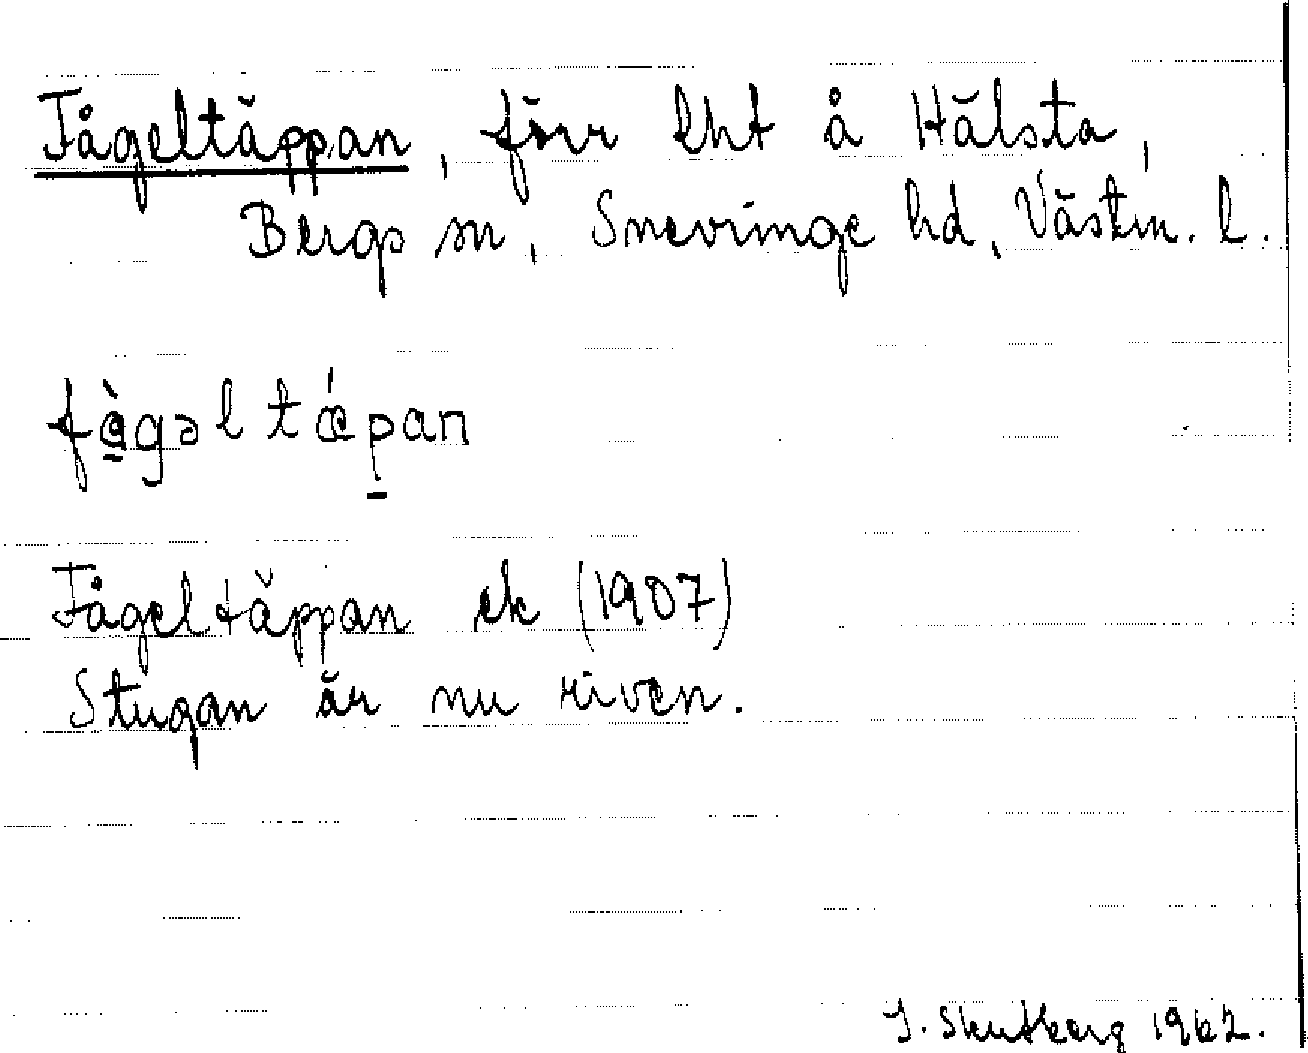 Fågeltäppan, förr lht å Hälsta,
Bergs sn, Snevringe hd, Västm. l.
fågəltǽpan
Fågeltäppan ek (1907)
Stugan är nu riven.
1962.